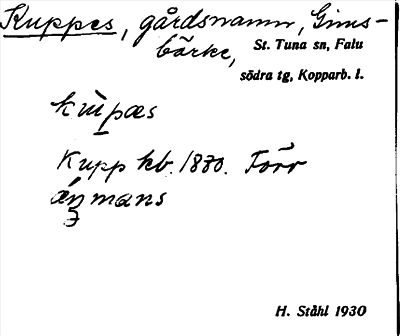 Kuppes, gårdsnamn, Gims-
bärke, St. Tuna sn, Falu
södra tg, Kopparb. l.
kùpæs
Kupp kb. 1870. Förr
mans
H. Ståhl 1930